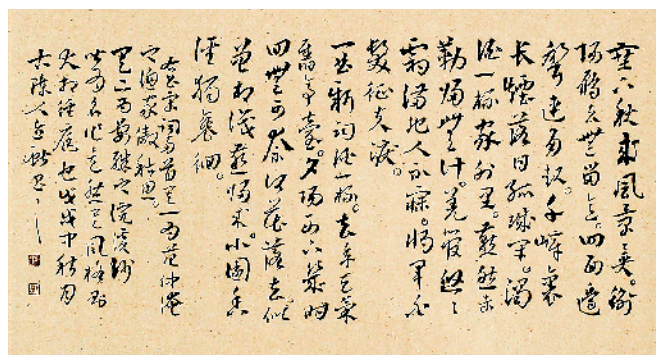 塞下秋來風景異。衡
陽雁去無留意。四面邊
聲連角起。千嶂裏
長煙落日孤城閉。濁
酒一杯家万里。燕然未
勒歸無計。羌管悠悠
霜滿地人不寐。將軍白
髮征夫淚。
一曲新詞酒一杯。去年天氣
舊亭臺。夕陽西下幾時
回無可奈何花落去似
曾相識燕歸來。小園香
徑獨徘徊。
右書宋詞兩首其一為范仲淹
之漁家傲秋思。
其二為晏殊之浣溪沙
皆為名作然其風格則
大相徑庭也戊戌中秋月